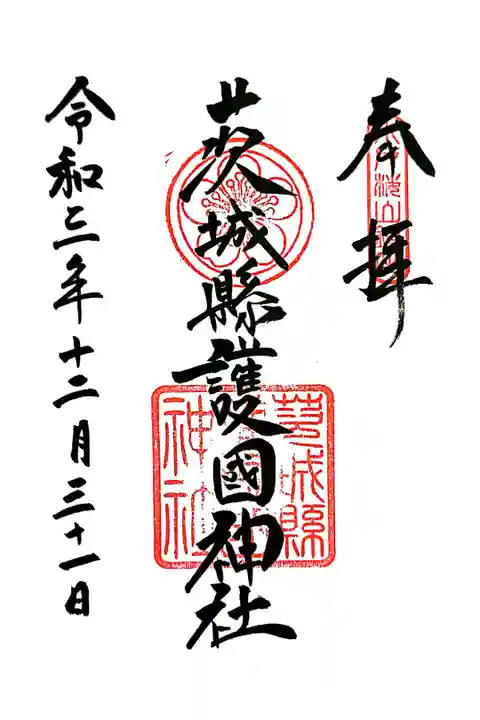 奉拝
茨城縣護國神社
茨城縣
神社
令和三年十二月三十一日